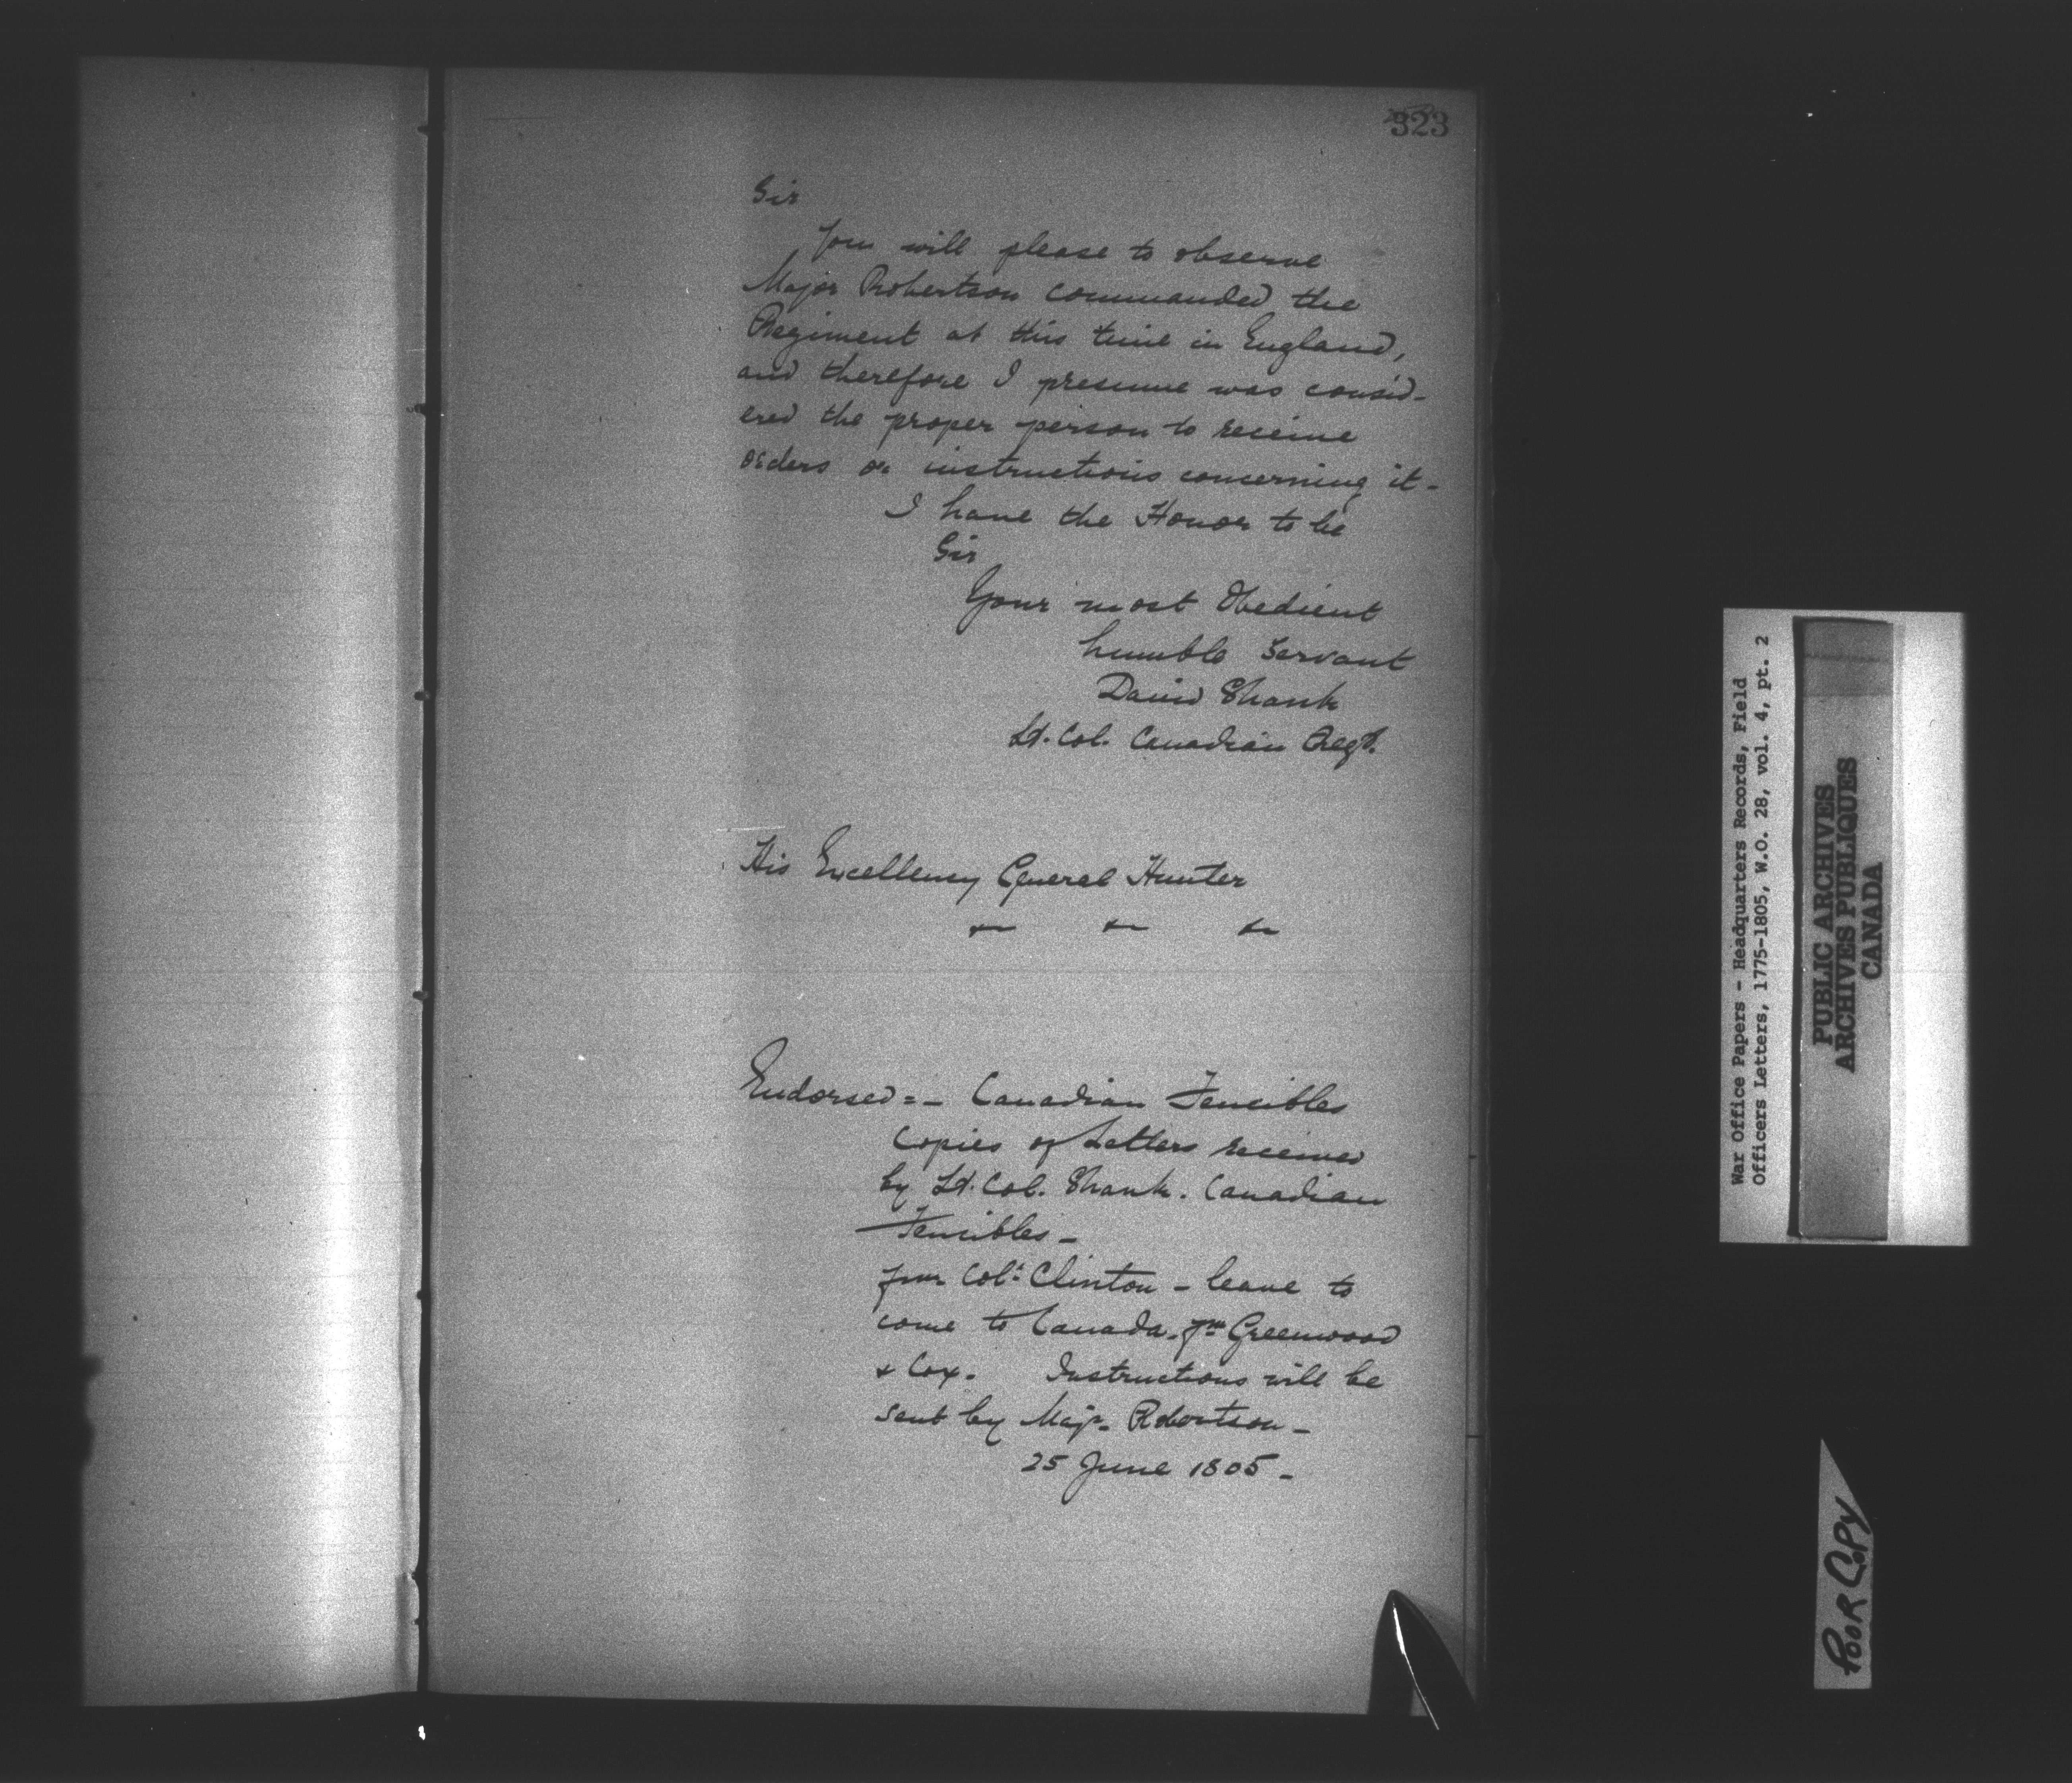 323
Sir
You will please to observe
Major Robertson commanded the
Regiment at this time in England,
and therefore I presume was consid-
ered the proper person to receive
orders or instructions concerning it-
I have the Honor to be
Sir
Your most Obedient
humble Servant
David Shank
Lt. Col. Canadian Regt.
His Excellency General Hunter
Endorsed = - Canadian Fencibles
Copies of Letters received
by Lt. Col. Shank. Canadian
Fencibles -
from Col: Clinton - leave to
come to Canada. fm Greenwood
& Cox. Instructions will be
sent by Majr. Robertson -
25 June 1805 -
War Office Papers - Headquarters Records, Field
Officers Letters, 1775-1805, W.O. 28, vol. 4, pt. 2
PUBLIC ARCHIVES
ARCHIVES PUBLIQUES
CANADA
POOR COPY